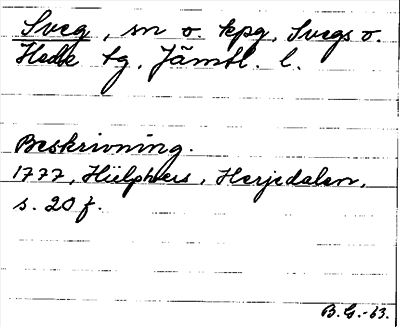 Sveg, sn o. kpg, Svegs o.
Hede tg, Jämtl. l.
Beskrivning.
1777, Hülphers, Herjedalen,
s. 20 f.
B.G.-63.